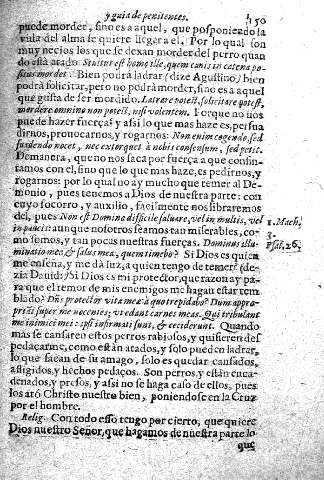 y guia de penitentes. 150
puede morder, sino es a aquel, que posponiendo la
vida del alma se quiere llegar a el. Por lo qual son
muy necios los que se dexan morder del perro quan
do està atado. Stultus est homo ille, quem canis in catena po
situs mordet: Bien podrà ladrar (dize Agustino) bien
podrà solicitar, pero no podrà morder, sino es a aquel
que gusta de ser mordido. Latrare potest, solicitare potest,
mordere omnino non potest, nisi volentem. Porque no nos
puede hazer fuerça: y assi lo que mas haze es, persua
dirnos, prouocarnos, y rogarnos: Non enim cogendo, sed
suadendo nocet, nec extorquet à nobis consensum, sed petit.
Demanera, que no nos saca por fuerça a que consin-
tamos con el, sino que lo que mas haze, es pedirnos, y
rogarnos: por lo qual no ay mucho que temer al De-
monio, pues tenemos a Dios de nuestra parte: con
cuyo socorro, y auxilio, facilmente nos libraremos
del, pues Non est Domino difficile saluare, vel in multis, vel
in paucis: aunque nosotros seamos tan miserables, co-
mo somos, y tan pocas nuestras fuerças. Dominus illu-
minatio mea, & salus mea, quem timebo? Si Dios es quien
me enseña, y me dà luz, a quien tengo de temer? (de-
zia Dauid) Si Dios es mi protector, que razon ay pa-
ra que el temor de mis enemigos me hagan estar tem
blado? Dñs protector vita mea à quo trepidabo? Dum appro-
priãt super me nocentes; vt edant carnes meas. Qui tribulant
me inimici mei: ipsi infirmati sunt, & ceciderunt. Quando
mas se cansaren estos perros rabiosos, y quisieren des
pedaçarme, como estàn atados, y solo pueden ladrar,
lo que sacan de su amago, solo es quedar cansados,
afligidos, y hechos pedaços. Son perros, y estàn enca-
denados, y presos, y assi no se haga caso de ellos, pues
los atò Christo nuestro bien, poniendose en la Cruz
por el hombre.
Relig. Con todo esso tengo por cierto, que quiere
Dios nuestro Señor, que hagamos de nuestra parte lo
que
1. Mach.
3.
Psal. 26.